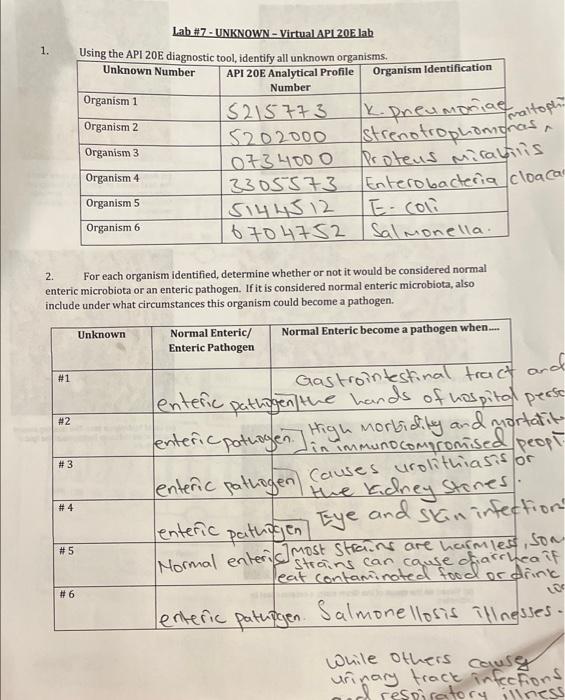 Lab #7 - UNKNOWN – Virtual API 20E lab
1. Using the API 20E diagnostic tool, identify all unknown organisms.
Unknown Number API 20E Analytical Profile Number Organism Identification
Organism 1 5215773 K. pneumoniae
Organism 2 5202000 Strenotrophomonas ^ maltophi
Organism 3 0734000 Proteus mirabilis
Organism 4 3305573 Enterobacteria cloaca
Organism 5 5144512 E. coli
Organism 6 6704752 Salmonella.
2. For each organism identified, determine whether or not it would be considered normal
enteric microbiota or an enteric pathogen. If it is considered normal enteric microbiota, also
include under what circumstances this organism could become a pathogen.
Unknown Normal Enteric/ Normal Enteric become a pathogen when....
Enteric Pathogen
#1 Gastrointestinal tract and
enteric pathogen the hands of hospital perso
#2 High morbidity and mortalit
enteric pathogen. in immunocompromised peopl
# 3 causes urolithiasis or
enteric pathogen the kidney stones.
# 4 Eye and skin infection
enteric pathogen
# 5 most strains are harmless, som
Normal enteric strains can cause diarrhea if
eat contaminated food or drink
# 6
enteric pathogen. Salmonellosis illnesses.
while others cause
urinary tract infections
and respiratory illness